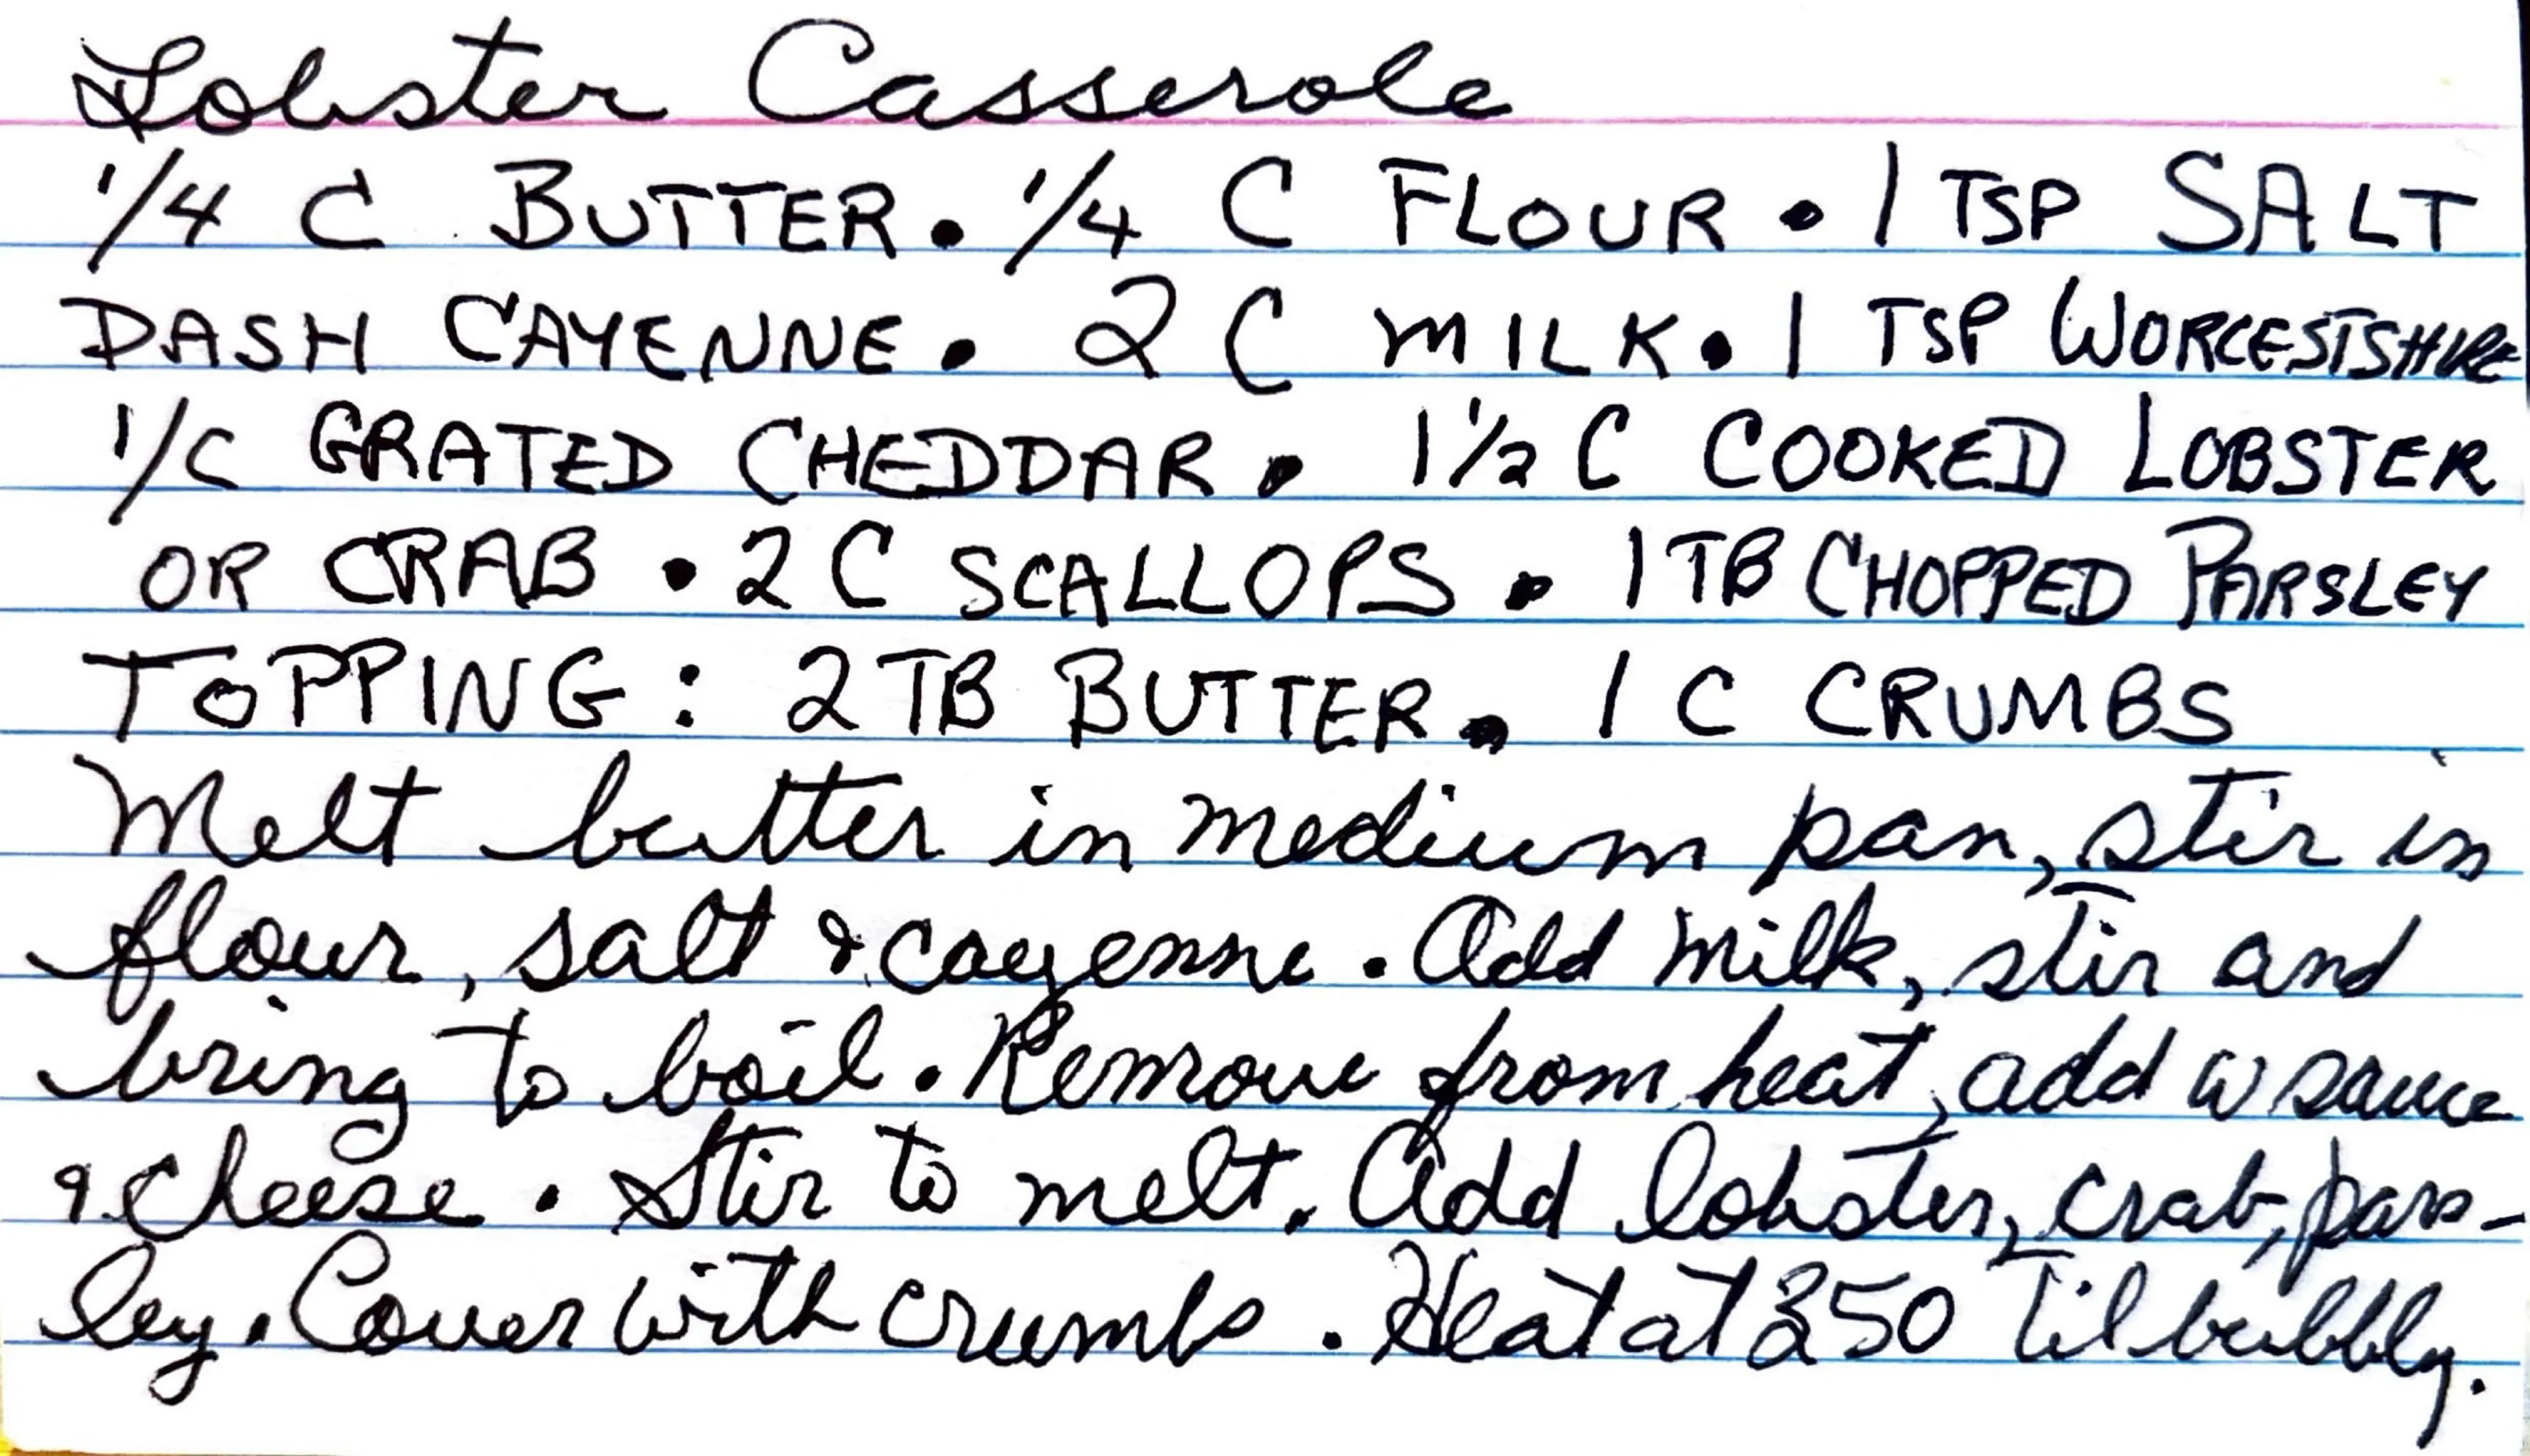 Lobster Casserole
1/4 C BUTTER • 1/4 C FLOUR • 1 TSP SALT
DASH CAYENNE • 2 C MILK • 1 TSP WORCESTSHIRE
1/C GRATED CHEDDAR • 1 1/2 C COOKED LOBSTER
OR CRAB • 2 C SCALLOPS • 1 TB CHOPPED PARSLEY
TOPPING: 2 TB BUTTER • 1 C CRUMBS
Melt butter in medium pan, stir in
flour, salt & cayenne. Add milk, stir and
bring to boil. Remove from heat, add w sauce
& cheese. Stir to melt. Add lobster, crab, pars-
ley. Cover with crumbs. Heat at 350 til bubbly.